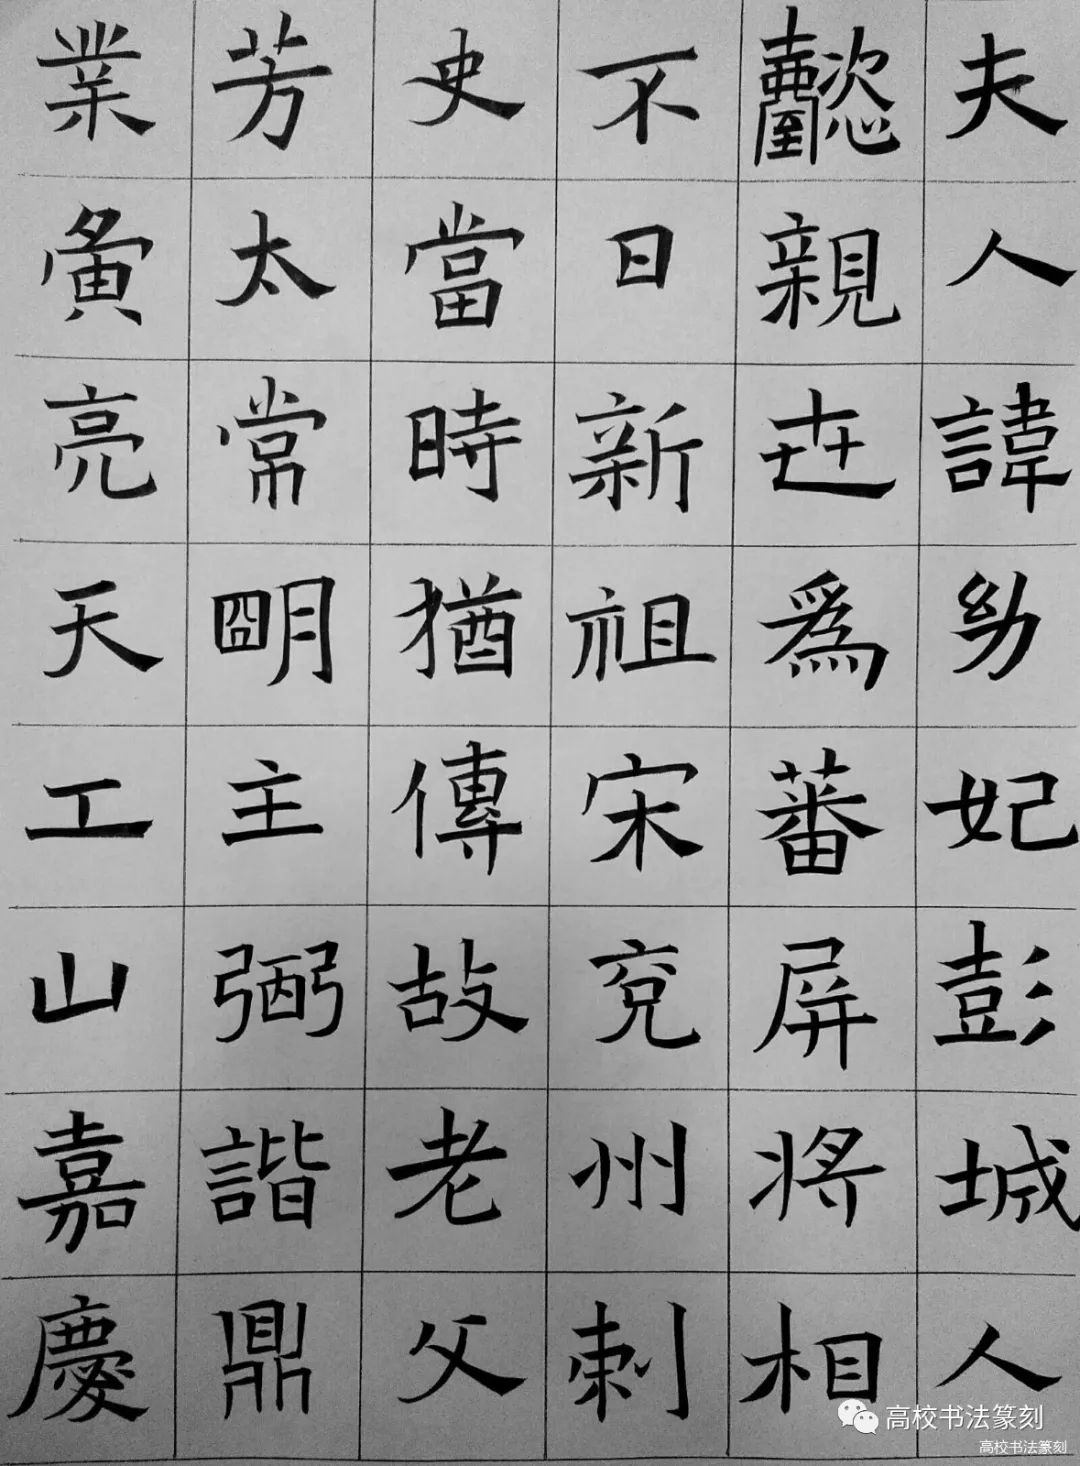 夫人諱幼妃彭城人
懿親世為蕃屏將相
不日新祖宋兖州刺
史當時猶傳故老父
芳太常明主弼諧鼎
業夤亮天工山嘉慶
高校书法篆刻
高校书法篆刻